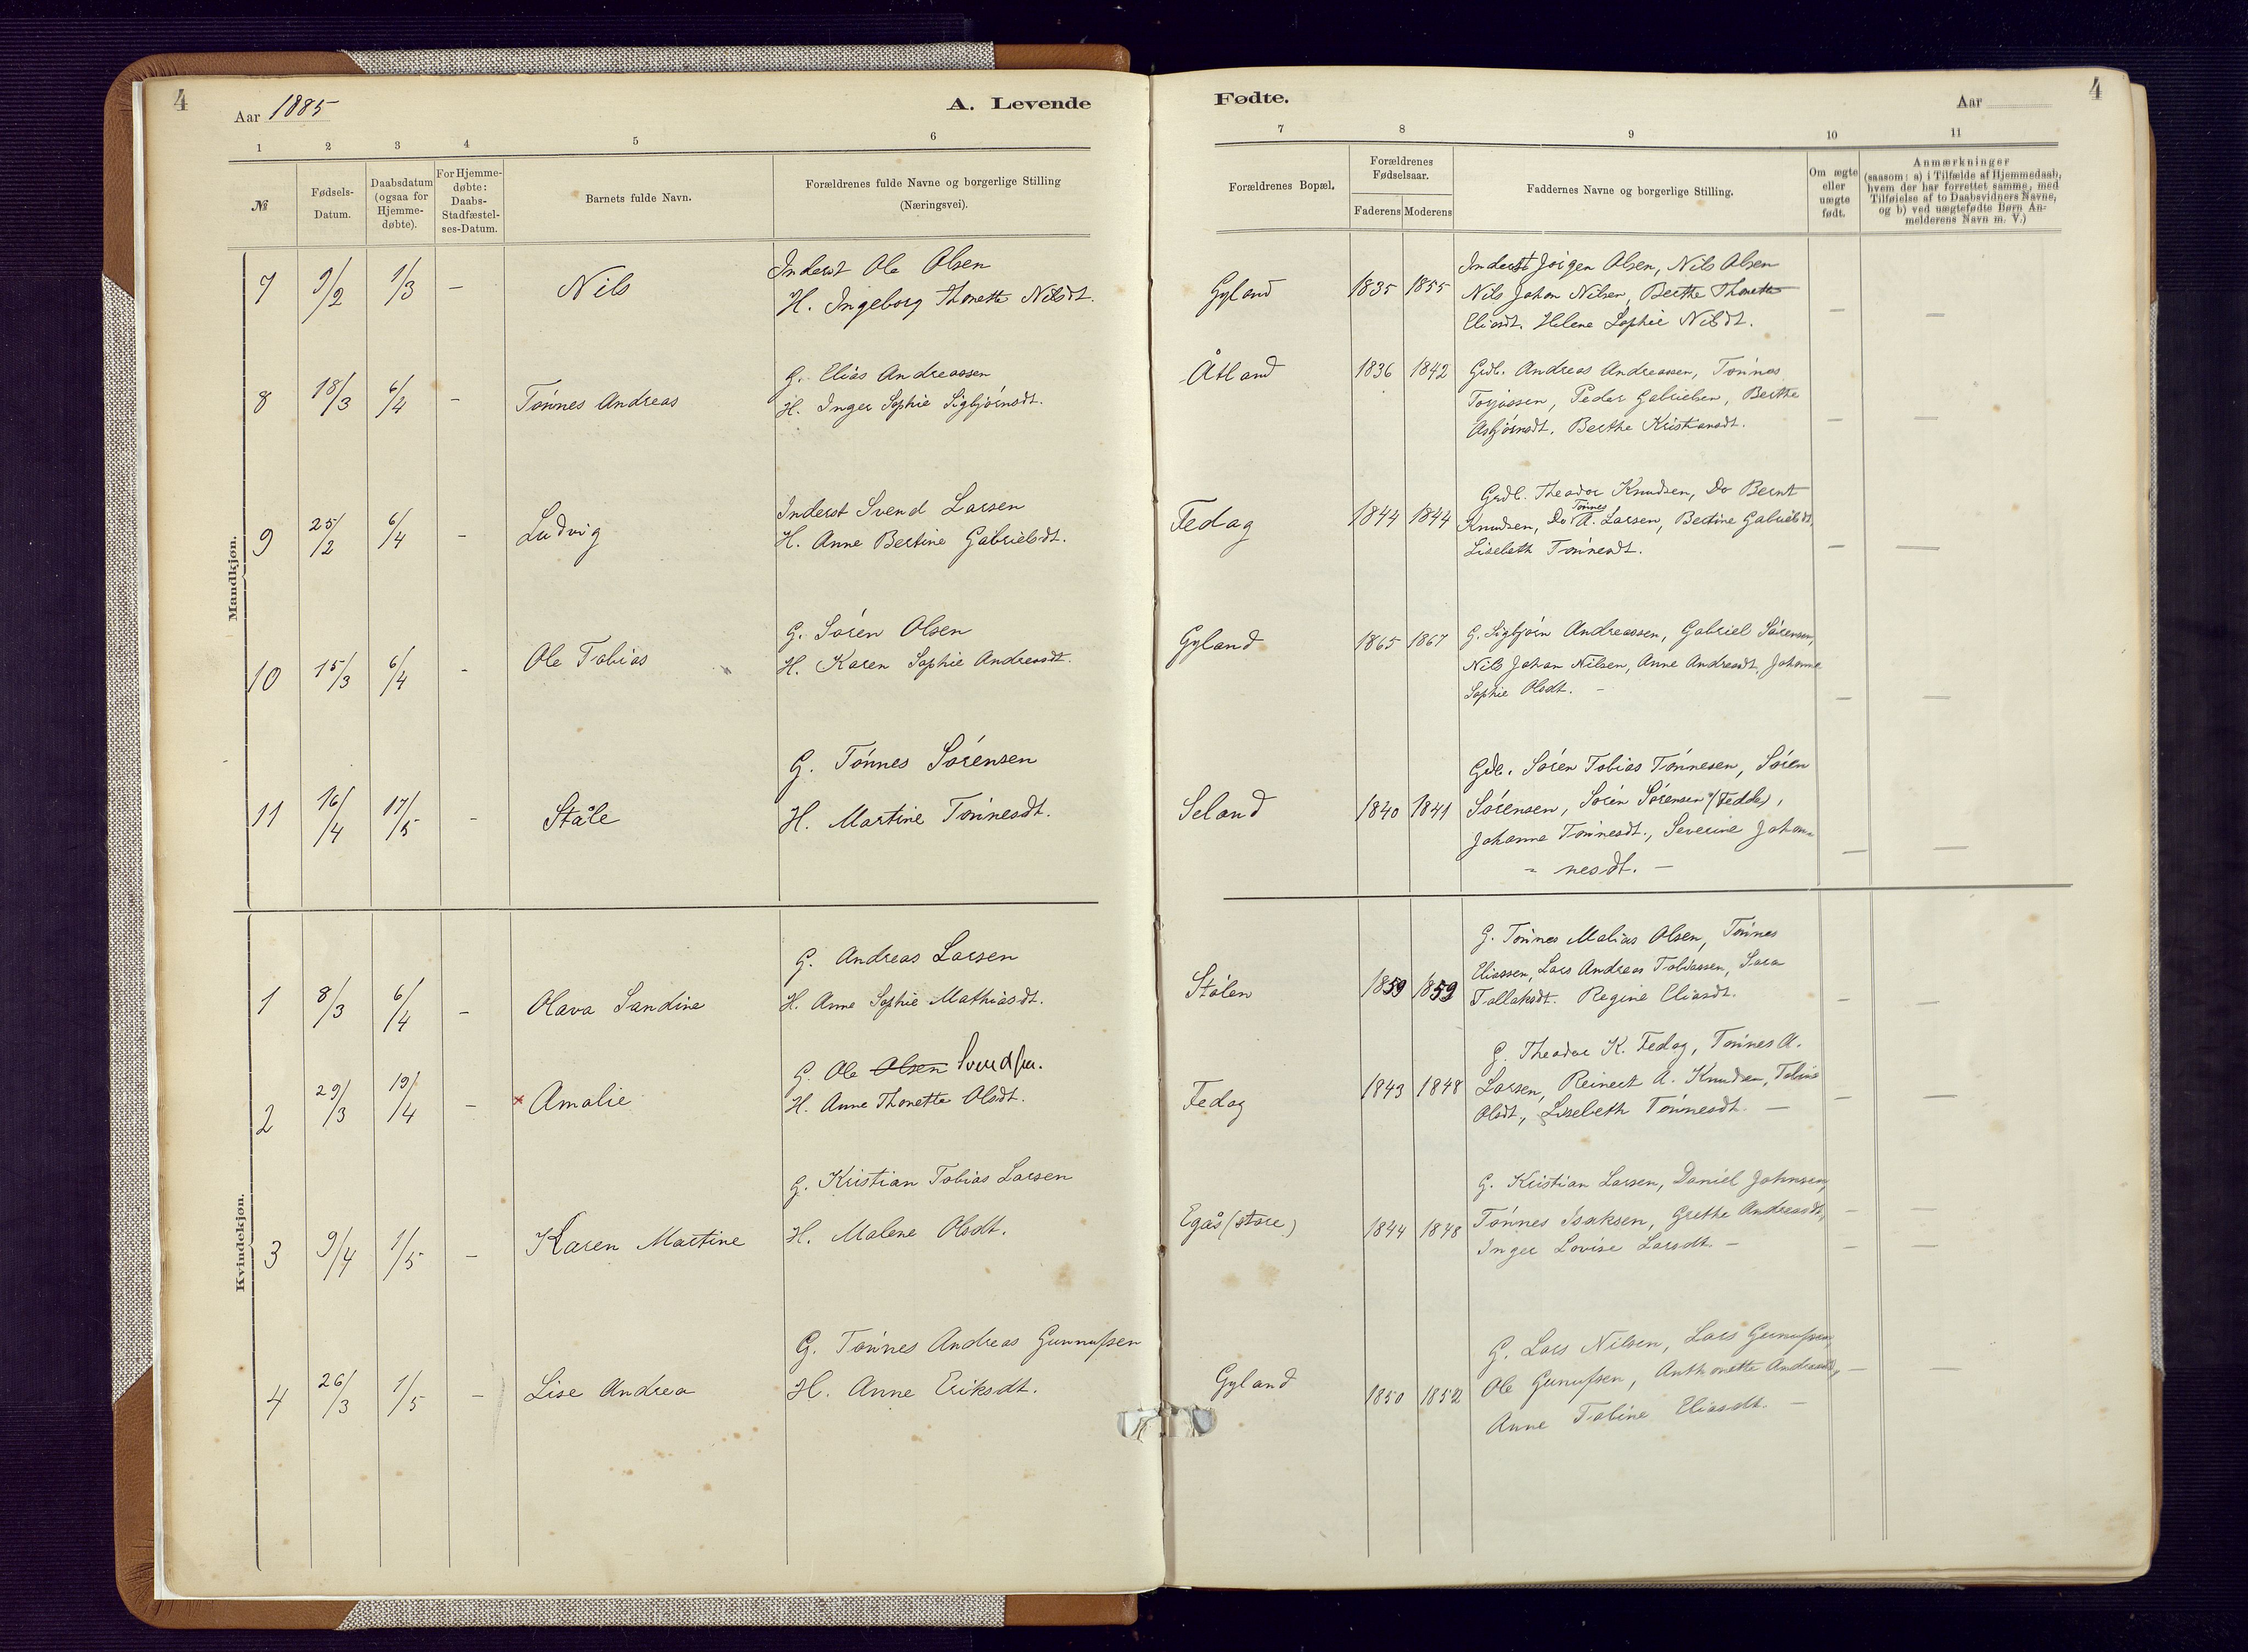 4
Aar 1885
A. Levende
1 2 3 4 5 6
№
Fødsels-Datum.
Daabsdatum (ogsaa for Hjemmedøbte).
For Hjemmedøbte: Daabs-Stadfæstelses-Datum.
Barnets fulde Navn.
Forældrenes fulde Navne og borgerlige Stilling
(Næringsvei).
Mandkjøn.
7 9/2 1/3 — Nils
Inderst Ole Olsen
H. Ingeborg Thonette Nilsdt.
8 18/3 6/4 — Tønnes Andreas
G. Elias Andreassen
H. Inger Sophie Sigbjørnsdt.
9 25/2 6/4 — Ludvig
Inderst Svend Larsen
H. Anne Bertine Gabrielsdt.
10 15/3 6/4 — Ole Tobias
G. Søren Olsen
H. Karen Sophie Andreasdt.
11 16/4 17/5 — Ståle
G. Tønnes Sørensen
H. Martine Tønnesdt.
Kvindekjøn.
1 8/3 6/4 — Olava Sandine
G. Andreas Larsen
H. Anne Sophie Mathiasdt.
2 29/3 19/4 — × Amalie
G. Ole Olsen Svendsen.
H. Anne Thonette Olsdt.
3 9/4 1/5 — Karen Martine
G. Kristian Tobias Larsen
H. Malene Olsdt.
4 26/3 1/5 — Lise Andrea
G. Tønnes Andreas Gunnufsen
H. Anne Eriksdt.
Fødte.
Aar
4
7 8 9 10 11
Forældrenes Bopæl.
Forældrenes Fødselsaar.
Faderens Moderens
Faddernes Navne og borgerlige Stilling.
Om ægte eller uægte født.
Anmærkninger
(saasom: a) i Tilfælde af Hjemmedaab,
hvem der har forrettet samme, med
Tilføielse af to Daabsvidners Navne,
og b) ved uægtefødte Børn An-
melderens Navn m. V.)
Gyland 1835 1855
Inderst Jørgen Olsen, Nils Olsen
Nils Johan Nilsen, Berthe Thonette
Eliasdt. Helene Sophie Nilsdt.
— —
Åtland 1836 1842
Grdb. Andreas Andreassen, Tønnes
Torjussen, Peder Gabrielsen, Berthe
Asbjørnsdt. Berthe Kristiansdt.
— —
Fedog 1844 1844
Grdb. Theodor Knudsen, Do Bernt
Knudsen, Do Tønnes A. Larsen, Bertine Gabrielsdt,
Lisebeth Tønnesdt.
— —
Gyland 1865 1867
G. Sigbjørn Andreassen, Gabriel Sørensen,
Nils Johan Nilsen, Anne Andreasdt, Johanne
Sophie Olsdt. —
— —
Seland 1840 1841
Gdb. Søren Tobias Tønnesen, Søren
Sørensen, Søren Sørensen (Fedde),
Johanne Tønnesdt., Severine Johan-
- nesdt. —
— —
Stølen 1859 1859
G. Tønnes Malias Olsen, Tønnes
Eliassen, Lars Andreas Tobiassen, Sara
Tollaksdt. Regine Eliasdt.
— —
Fedog 1843 1848
G. Theodor K. Fedog, Tønnes A.
Larsen, Reinert A. Knudsen, Tobine
Olsdt., Lisebeth Tønnesdt. —
— —
Egås (store) 1844 1848
G. Kristian Larsen, Daniel Johnsen,
Tønnes Isaksen, Grethe Andreasdt,
Inger Lovise Larsdt. —
— —
— —
Gyland 1850 1852
G. Lars Nilsen, Lars Gunufsen,
Ole Gunufsen, Anthonette Andreasdt,
Anne Tobine Eliasdt. —
— —